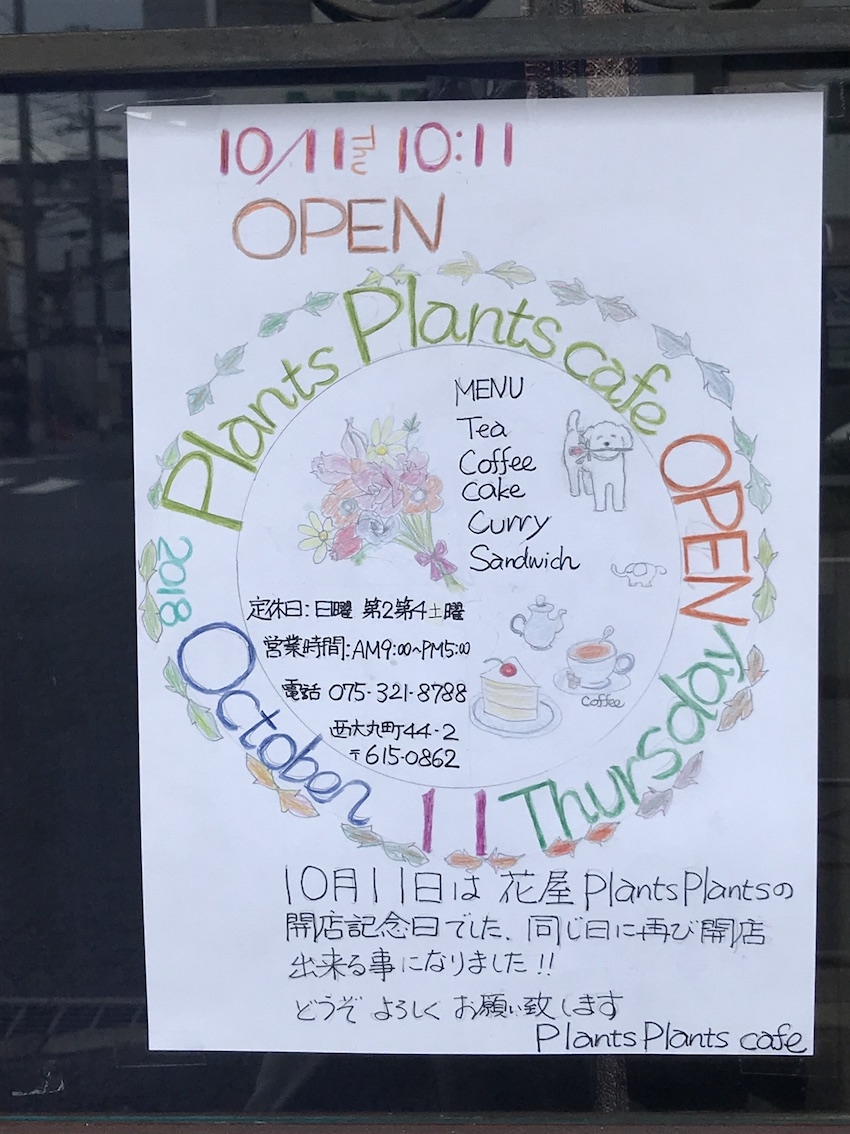 10/11 Thu 10:11
OPEN
Plants Plants cafe OPEN
2018 October 11 Thursday
MENU
Tea
Coffee
Cake
Curry
Sandwich
定休日:日曜 第2第4土曜
営業時間:AM9:00~PM5:00
電話 075-321-8788
西大丸町44-2
〒615-0862
coffee
10月11日は 花屋 PlantsPlantsの
開店記念日でした、同じ日に再び開店
出来る事になりました!!
どうぞ よろしく お願い致します
PlantsPlants cafe